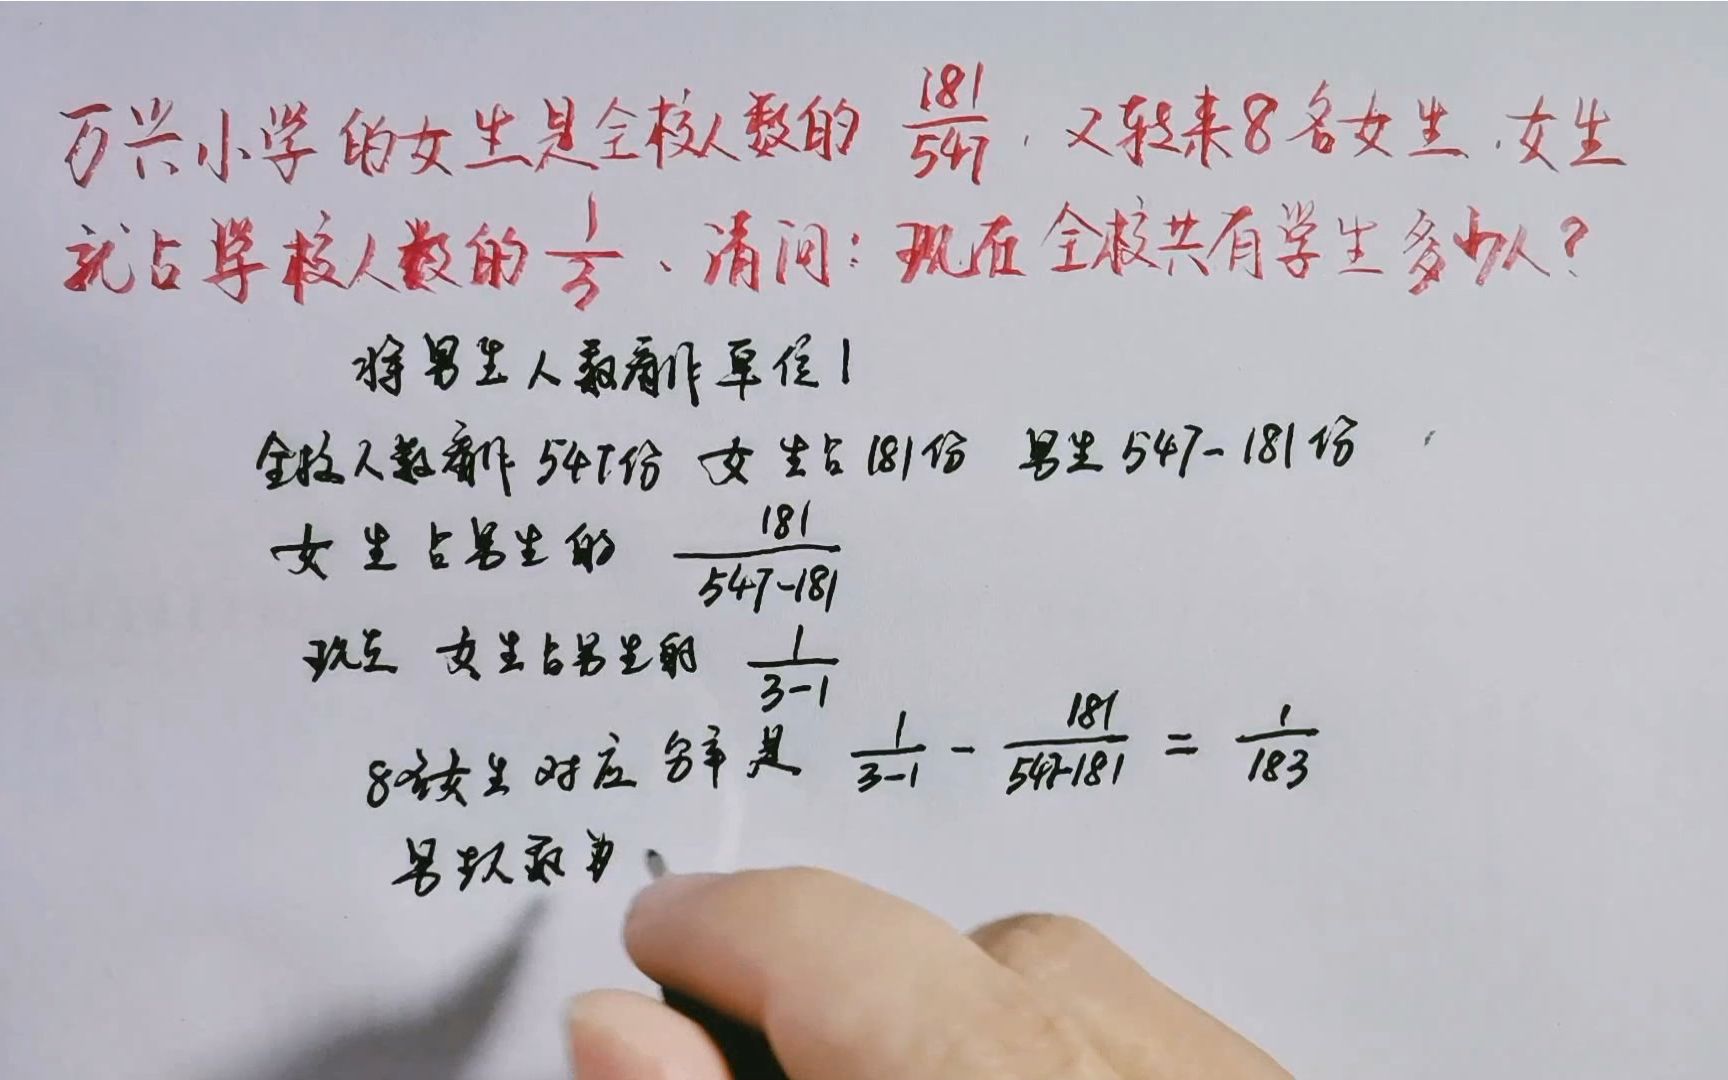 万兴小学的女生是全校人数的 181/547，又转来8名女生，女生
就占学校人数的 1/3、请问：现在全校共有学生多少人？
将男生人数看作单位1
全校人数看作547份 女生占181份 男生547-181份
女生占男生的 181/(547-181)
现在 女生占男生的 1/(3-1)
8名女生对应分率是 1/(3-1) - 181/(547-181) = 1/183
男生人数为